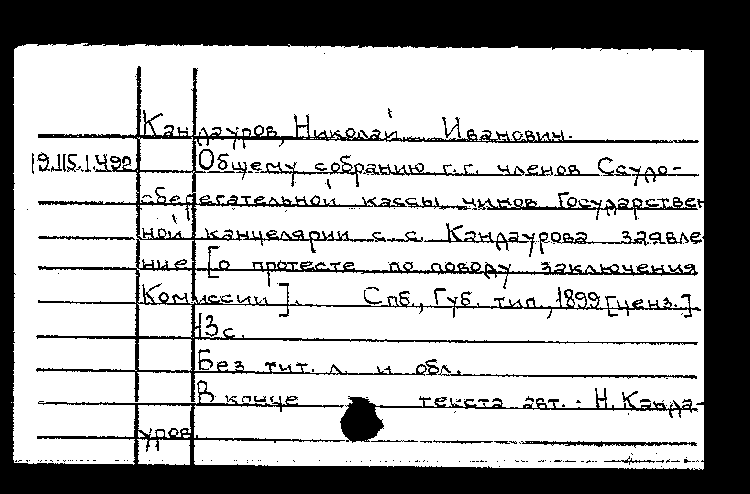 Кандауров, Николай Иванович.
19.115.1.490 Общему собранию г.г. членов Ссудо-
сберегательной кассы чинов Государствен
ной канцелярии с. с. Кандаурова заявле
ние [о протесте по поводу заключения
Комиссии]. Спб., Губ. тип., 1899 [ценз.].
13 с.
Без тит. л. и обл.
В конце текста авт.: Н. Канда-
уров.